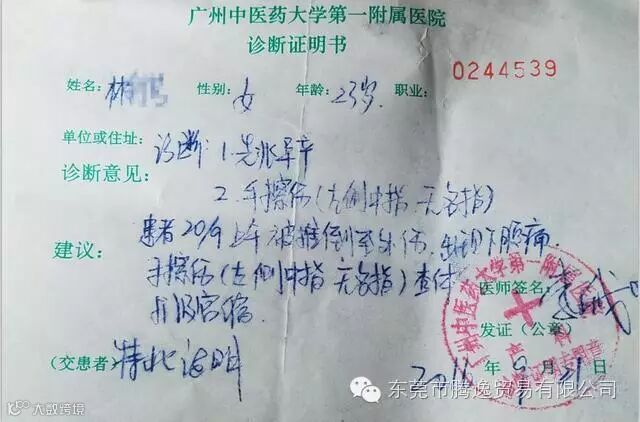 广州中医药大学第一附属医院
诊断证明书
0244539
姓名: 林 性别: 女 年龄: 23岁 职业:
单位或住址:
诊断: 1.先兆早产
诊断意见:
2.手擦伤(左侧中指 无名指)
患者20/9上午被推倒至外伤,出现下腹痛
建议:
手擦伤(左侧中指 无名指)查体
扪及宫缩.
医师签名:
发证(公章)
(交患者) 特此证明
2011年9月21日
广州中医药大学第一附属医院
东莞市腾逸贸易有限公司
大数跨境